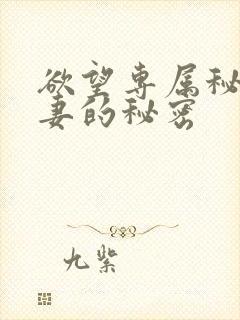 欲望专属秘
妻的秘密
九紫